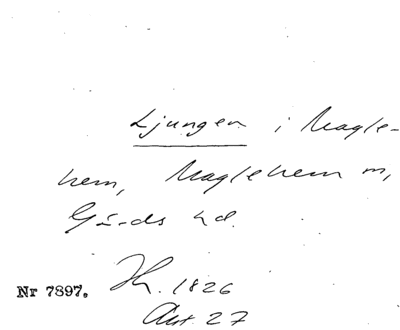 Ljungen i Magle-
hem, Maglehem m,
Gärds hd.
Nr 7897. Jh. 1826
Akt. 27